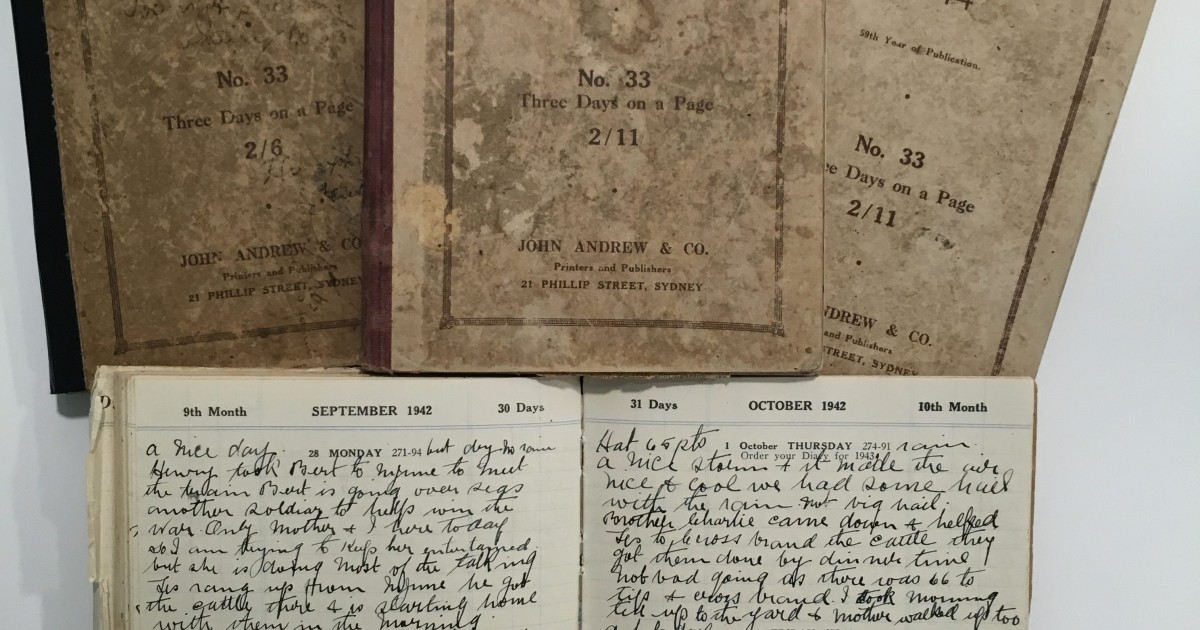 No. 33
Three Days on a Page
2/6
JOHN ANDREW & CO
Printers and Publishers
21 PHILLIP STREET, SYDNEY
No. 33
Three Days on a Page
2/11
JOHN ANDREW & CO.
Printers and Publishers
21 PHILLIP STREET, SYDNEY
59th Year of Publication.
No. 33
ee Days on a Page
2/11
NDREW & CO.
and Publishers
STREET, SYDNEY
9th Month SEPTEMBER 1942 30 Days
a nice day. 28 MONDAY 271-94 but dry no rain
Henry took Bert to to meet
the train Bert is going over seas
another soldier to help win the
war. Only Mother & I here to day
so I am trying to keep her entertained
but she is doing most of the talking
Les rang up from he got
the cattle there & is starting home
with them in the morning
31 Days OCTOBER 1942 10th Month
Hat 65 pts 1 October THURSDAY 274-91 rain
Order your Diary for 1943
a nice storm & it made the air
nice & cool we had some hail
with the rain not big hail.
Brother Charlie came down & helped
Les to cross brand the cattle they
got them done by dinner time
not bad going as there was 66 to
tip & cross brand. I took morning
tea up to the yard & Mother walked up too